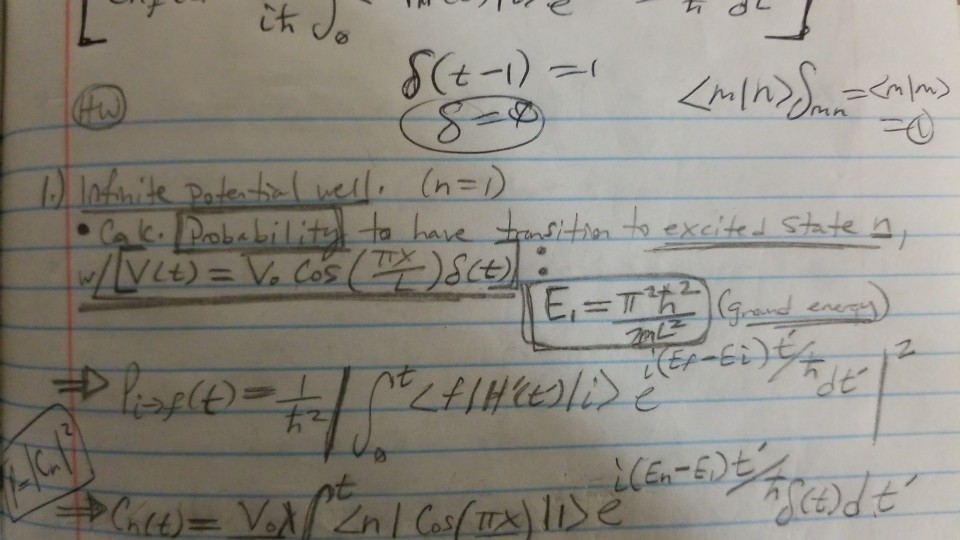 iħ ∫₀
δ(t-1) = 1
<m|n>δmn = <m|m>
= 1
HW
δ = ∞
1.) Infinite potential well. (n=1)
• Calc. Probability to have transition to excited state n,
w/ V(t) = V₀ Cos(πx/L) δ(t) :
E₁ = π²ħ²/2mL² (ground energy)
⇒ Pi→f(t) = 1/ħ² | ∫₀ᵗ <f|H'(t)|i> e^{i(Ef-Ei)t'/ħ} dt' |²
|Cn|²
⇒ Cn(t) = V₀ ∫ᵗ <n| Cos(πx) |1> e^{i(En-E1)t'/ħ} δ(t) dt'